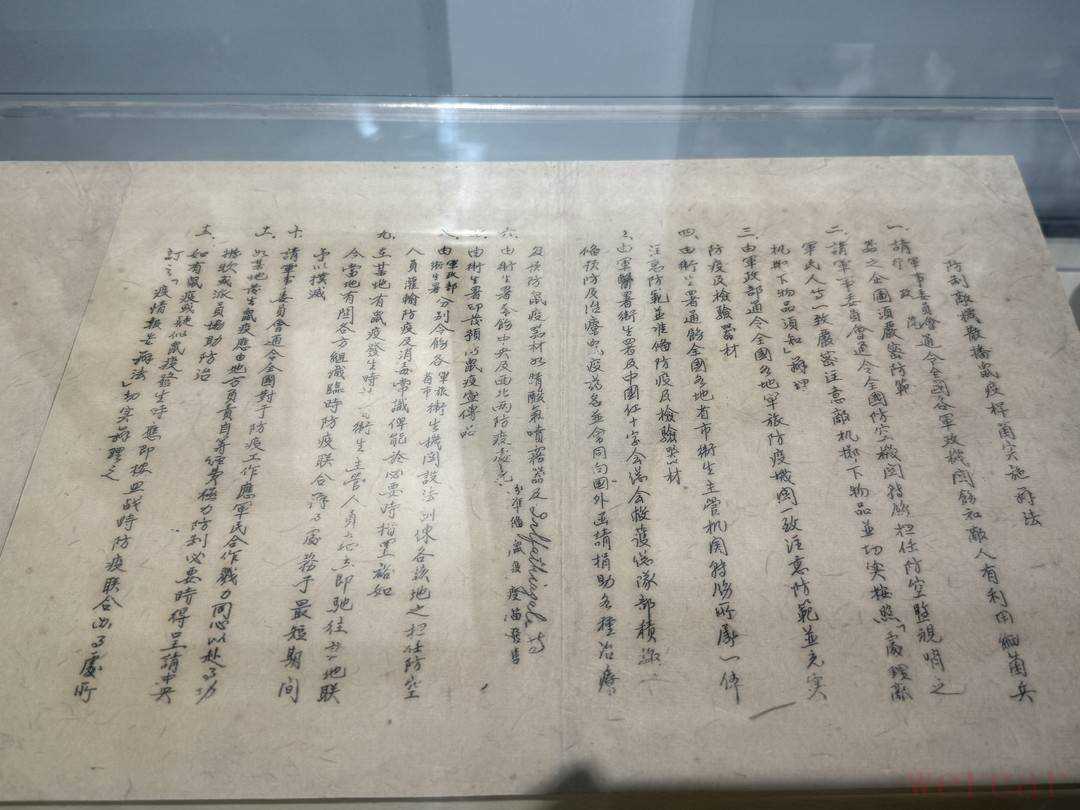 防制敵機散播鼠疫桿菌实施辦法
一、請軍事委員會通令全國各軍政機関飭知敵人有利用細菌兵
器之企圖須嚴密防範
二、請軍事委員會通令全國防空機関轉飭担任防空監視哨之
軍民人等一致嚴密注意敵机擲下物品並切实按照「處理敵
机擲下物品須知」辦理
三、由軍政部通令全國各地軍旅防疫機関一致注意防範並充实
防疫及檢驗器材
四、由衛生署通飭全國各地省市衛生主管机関轉飭所屬一体
注意防範並准備防疫及檢驗器材
由軍醫署衛生署及中國红十字会总会救護总隊部積極
備预防及治療鼠疫药品並会同向國外函請捐助各種治療
及预防鼠疫器材如氰酸氣噴霧器及 Sulfathiazole 等
六、由衛生署令飭中央及西北两防疫處充分準備鼠疫疫苗發售
由衛生署印發预防鼠疫宣傳品
八、由軍政部衛生署分别令飭各軍旅省市衛生機関設法训練各该地之担任防空
人員灌輸防疫及消毒常識俾能於必要時措置裕如
九、在某地有鼠疫發生時衛生主管人員立即馳往該地联
合當地有関各方組織臨時防疫联合辦事處務于最短期间
予以撲滅
十、請軍事委員會通令全國對于防疫工作應軍民合作戮力同心以赴事功
十一、如某地發生鼠疫應由地方負責自籌经費極力防制必要時得呈請中央
撥款或派員協助防治
十二、如有鼠疫或疑似鼠疫發生時應即按照戰時防疫联合辦事處所
訂之「疫情報告辦法」切实辦理之